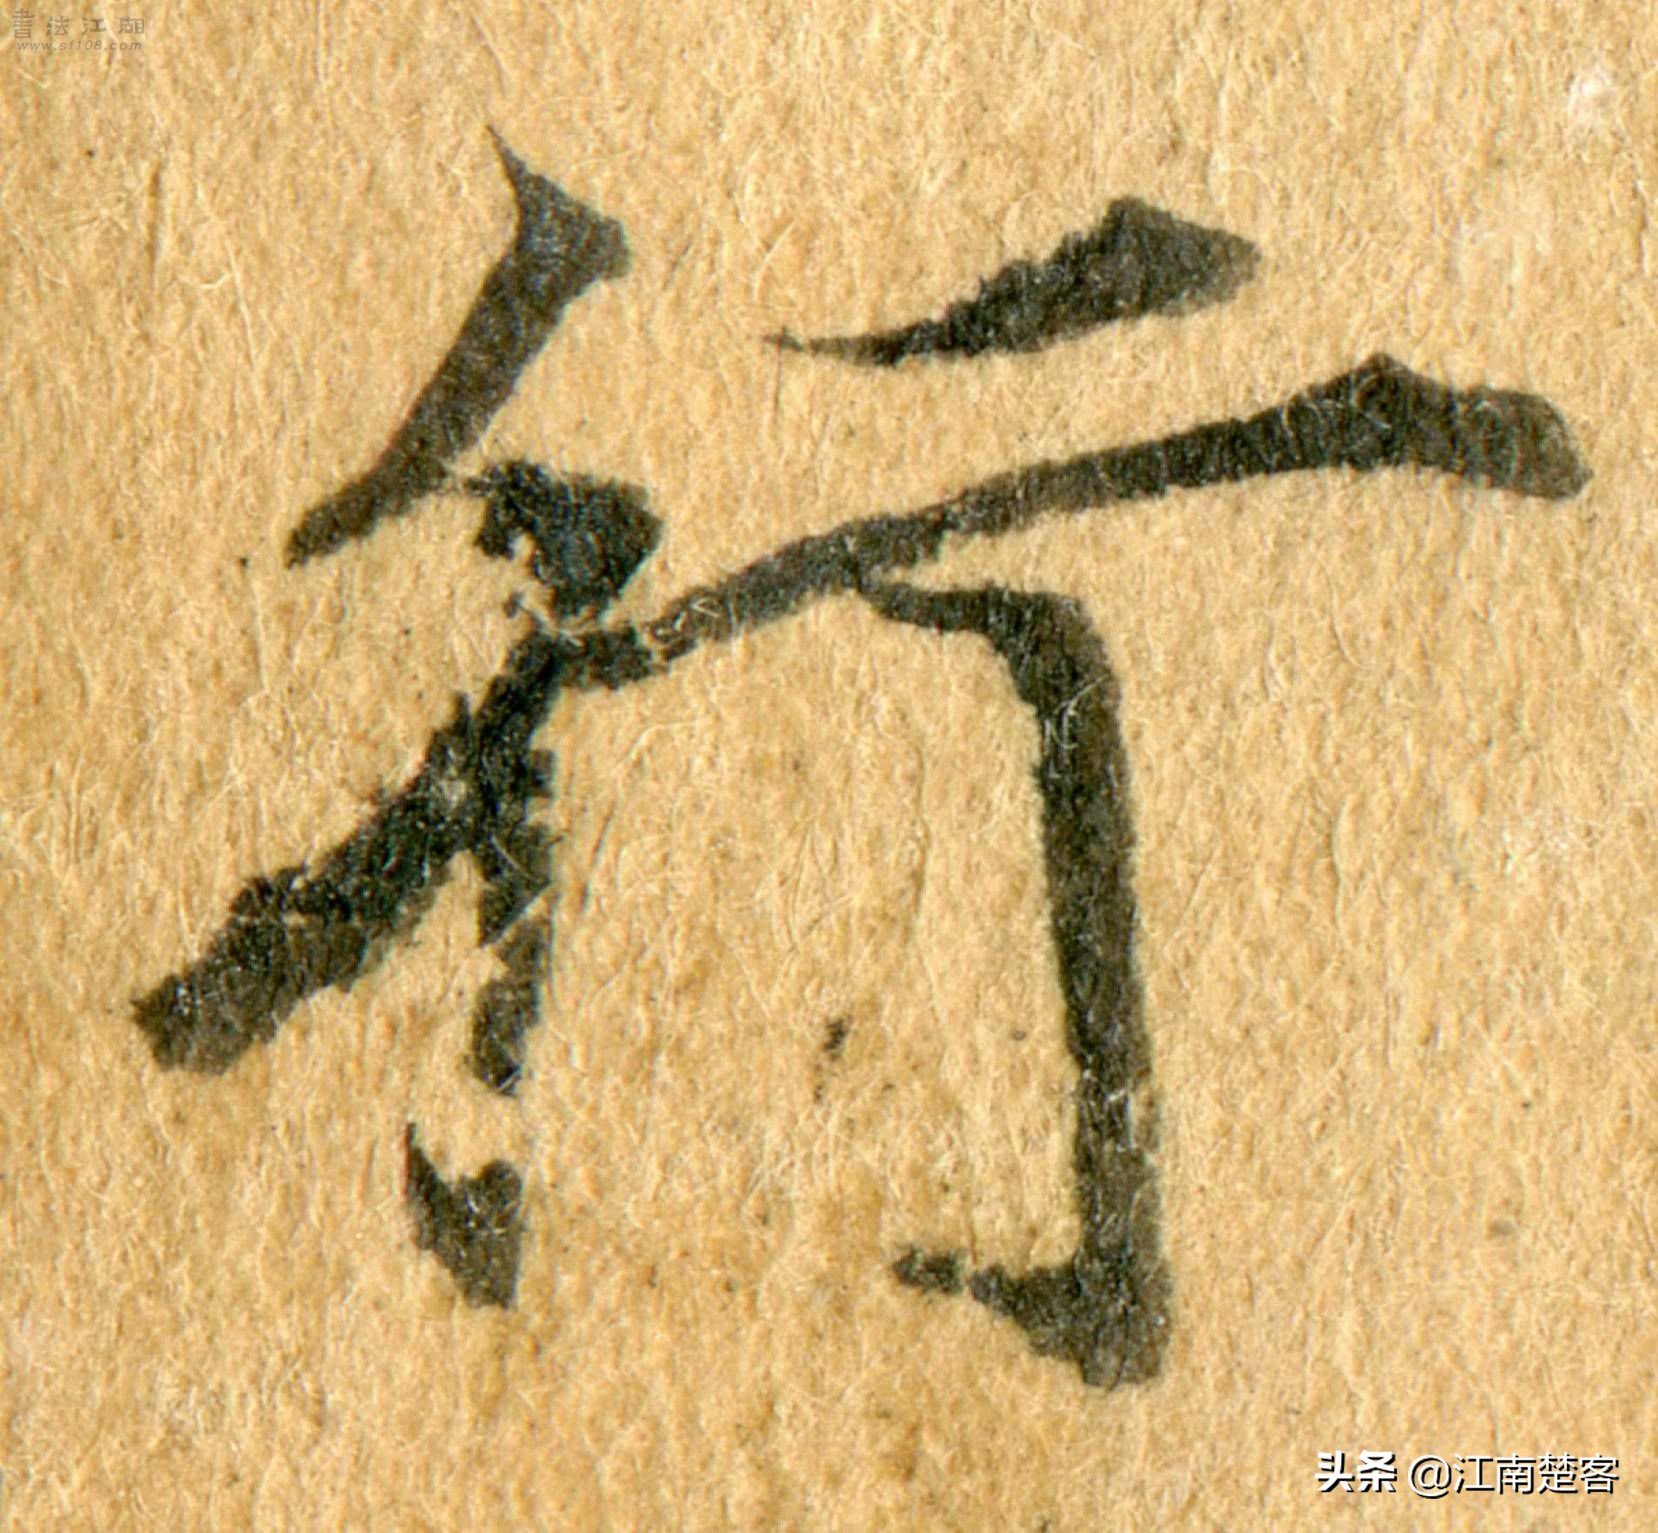 書法江湖
www.sf108.com
行
头条 @江南楚客